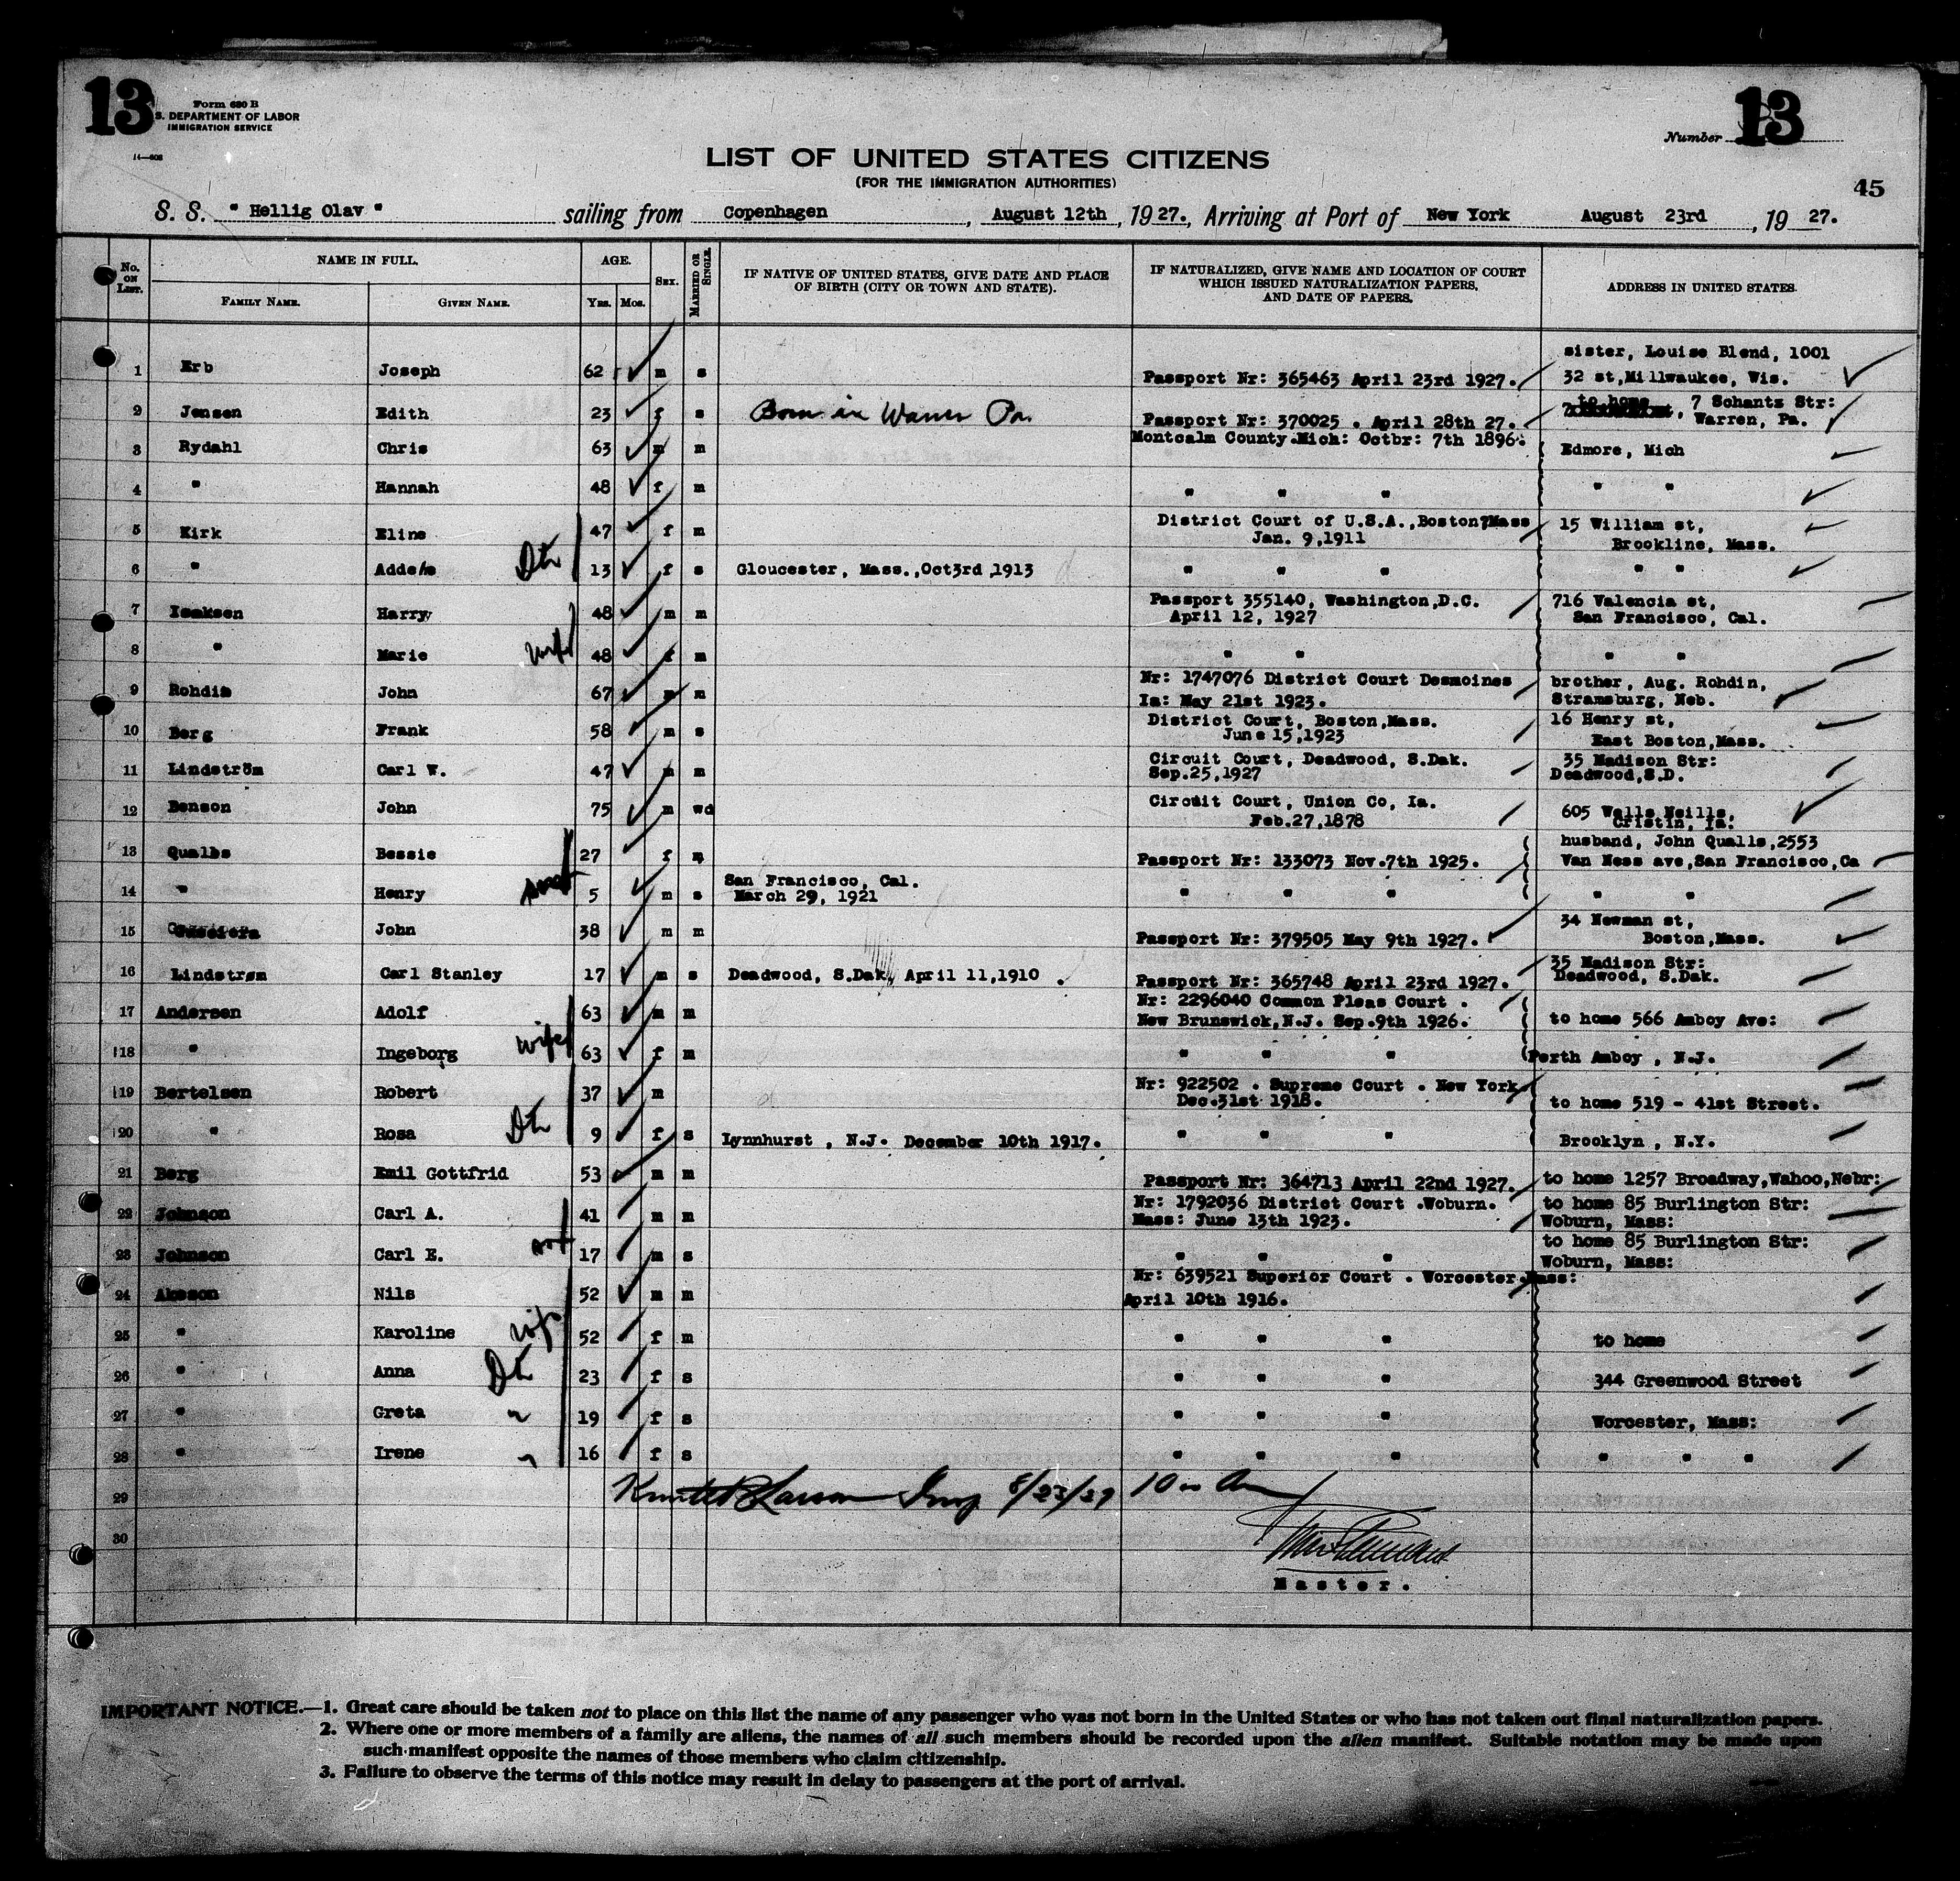 13
Form 680 B
S. DEPARTMENT OF LABOR
IMMIGRATION SERVICE
14—608
Number 13
LIST OF UNITED STATES CITIZENS
(FOR THE IMMIGRATION AUTHORITIES)
45
S. S. " Hellig Olav " sailing from Copenhagen, August 12th, 1927., Arriving at Port of New York August 23rd, 19 27.
No. ON LIST. NAME IN FULL. AGE. SEX. MARRIED OR SINGLE. IF NATIVE OF UNITED STATES, GIVE DATE AND PLACE OF BIRTH (CITY OR TOWN AND STATE). IF NATURALIZED, GIVE NAME AND LOCATION OF COURT WHICH ISSUED NATURALIZATION PAPERS, AND DATE OF PAPERS. ADDRESS IN UNITED STATES.
FAMILY NAME. GIVEN NAME. Yrs. Mos.
1 Erb Joseph 62 m s Passport Nr: 365463 April 23rd 1927. sister, Louise Blend, 1001
32 st,Millwaukee, Wis.
2 Jensen Edith 23 f s Born in Warren Pa. Passport Nr: 370025 . April 28th 27. to home, 7 Schants Str:
Warren, Pa.
3 Rydahl Chris 63 m m Montcalm County.Mich: Octbr: 7th 1896. Edmore, Mich
4 " Hannah 48 f m " " " " "
5 Kirk Eline 47 f m District Court of U.S.A.,Boston,Mass 15 William st,
Jan. 9,1911 Brookline, Mass.
6 " Addele Dtr 13 f s Gloucester, Mass.,Oct3rd,1913 " " " " "
7 Isaksen Harry 48 m m Passport 355140, Washington,D.C. 716 Valencia st,
April 12, 1927 San Francisco, Cal.
8 " Marie wife 48 f m " " " "
9 Rohdin John 67 m m Nr: 1747076 District Court Desmoines brother, Aug. Rohdin,
Ia: May 21st 1923. Stramsburg, Neb.
10 Berg Frank 58 m s District Court, Boston,Mass. 16 Henry st,
June 15,1923 East Boston,Mass.
11 Lindström Carl W. 47 m m Circuit Court, Deadwood, S.Dak. 35 Madison Str:
Sep.25,1927 Deadwood,S.D.
12 Benson John 75 m wd Circuit Court, Union Co, Ia. 605 Walls Neills,
Feb.27,1878 Cristin, Ia.
13 Qualls Bessie 27 f m Passport Nr: 133073 Nov.7th 1925. husband, John Qualls,2553
Van Ness ave,San Francisco,Ca
14 " Henry 5 m s San Francisco, Cal. " " " " "
March 29, 1921
15 John 38 m m Passport Nr: 379505 May 9th 1927. 34 Newman st,
Boston,Mass.
16 Lindstrøm Carl Stanley 17 m s Deadwood, S.Dak, April 11,1910 . Passport Nr: 365748 April 23rd 1927. 35 Madison Str:
Deadwood, S.Dak.
17 Andersen Adolf 63 m m Nr: 2296040 Common Pleas Court .
New Brunswick,N.J. Sep.9th 1926. to home 566 Amboy Ave:
18 " Ingeborg wife 63 f m " " " Perth Amboy , N.J.
19 Bertelsen Robert 37 m Nr: 922502 . Supreme Court . New York.
Dec.31st 1918. to home 519 - 41st Street.
20 " Rosa Dtr 9 f s Lynnhurst , N.J. December 10th 1917. " " " Brooklyn , N.Y.
21 Berg Emil Gottfrid 53 m m Passport Nr: 364713 April 22nd 1927. to home 1257 Broadway,Wahoo,Nebr:
22 Johnson Carl A. 41 m m Nr: 1792036 District Court .Woburn. to home 85 Burlington Str:
Mass: June 13th 1923. Woburn, Mass:
23 Johnson Carl E. 17 m s " " " to home 85 Burlington Str:
Woburn, Mass:
24 Akeson Nils 52 m m Nr: 639521 Superior Court . Worcester.Mass:
April 10th 1916.
25 " Karoline wife 52 f m " " " to home
26 " Anna Dtr 23 f s " " " 344 Greenwood Street
27 " Greta " 19 f s " " " Worcester, Mass:
28 " Irene " 16 f s " " " " " "
29 Larson Insp 8/23/27 10 00 Am
30
Master.
IMPORTANT NOTICE.—1. Great care should be taken not to place on this list the name of any passenger who was not born in the United States or who has not taken out final naturalization papers.
2. Where one or more members of a family are aliens, the names of all such members should be recorded upon the alien manifest. Suitable notation may be made upon
such manifest opposite the names of those members who claim citizenship.
3. Failure to observe the terms of this notice may result in delay to passengers at the port of arrival.